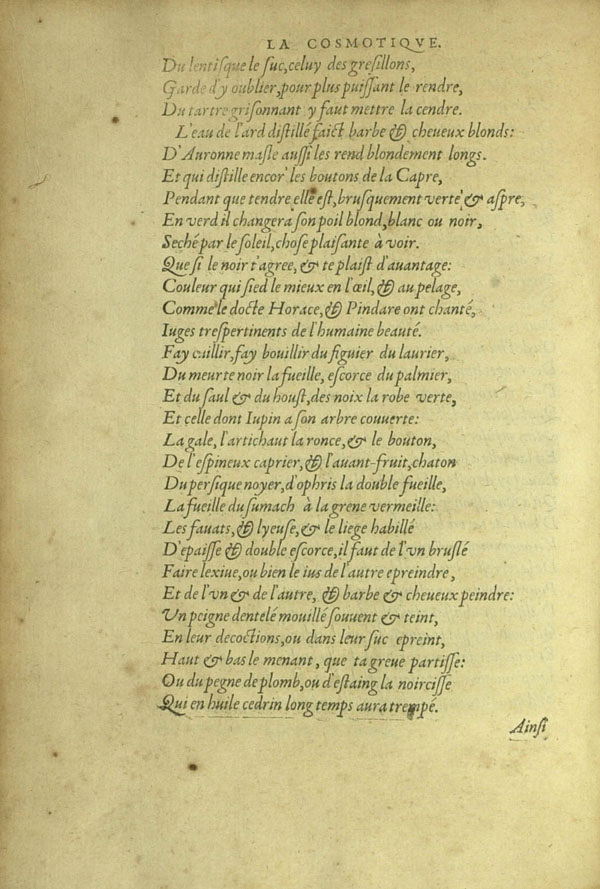 LA COSMOTIQVE.
Du lentiſque le ſuc, celuy des greſillons,
Garde d'y oublier, pour plus puiſſant le rendre,
Du tartre griſonnant y faut mettre la cendre.
L'eau de l'ard diſtillé faict barbe & cheueux blonds:
D'Auronne maſle auſſi les rend blondement longs.
Et qui diſtille encor' les boutons de la Capre,
Pendant que tendre elle eſt, bruſquement verte & aſpre,
En verd il changera ſon poil blond, blanc ou noir,
Seché par le ſoleil, choſe plaiſante à voir.
Que ſi le noir t'agree, & te plaiſt d'auantage:
Couleur qui ſied le mieux en l'œil, & au pelage,
Comme le docte Horace, & Pindare ont chanté,
Iuges treſpertinents de l'humaine beauté.
Fay cuillir, fay bouillir du figuier du laurier,
Du meurte noir la fueille, eſcorce du palmier,
Et du ſaul & du houſt, des noix la robe verte,
Et celle dont Iupin a ſon arbre couuerte:
La gale, l'artichaut la ronce, & le bouton,
De l'eſpineux caprier, & l'auant-fruit, chaton
Du perſique noyer, d'ophris la double fueille,
La fueille du ſumach à la grene vermeille:
Les fauats, & lyeuſe, & le liege habillé
D'epaiſſe & double eſcorce, il faut de l'vn bruſlé
Faire lexiue, ou bien le ius de l'autre epreindre,
Et de l'vn & de l'autre, & barbe & cheueux peindre:
Vn peigne dentelé mouillé ſouuent & teint,
En leur decoctions, ou dans leur ſuc epreint,
Haut & bas le menant, que ta greue partiſſe:
Ou du pegne de plomb, ou d'eſtaing la noirciſſe
Qui en huile cedrin long temps aura trempé.
Ainſi